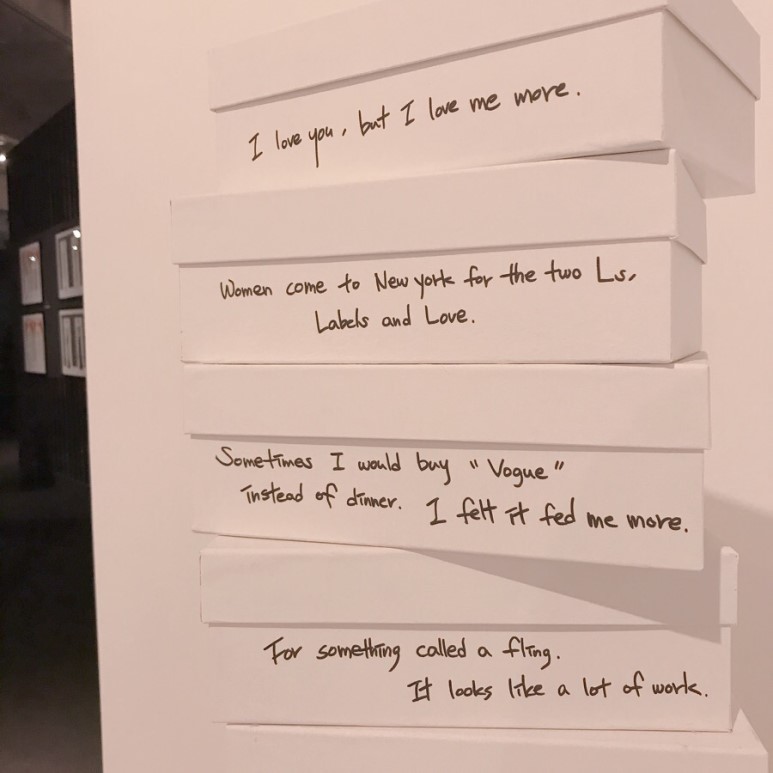 I love you, but I love me more.
Women come to New york for the two Ls,
Labels and Love.
Sometimes I would buy "Vogue"
instead of dinner. I felt it fed me more.
For something called a fling.
It looks like a lot of work.